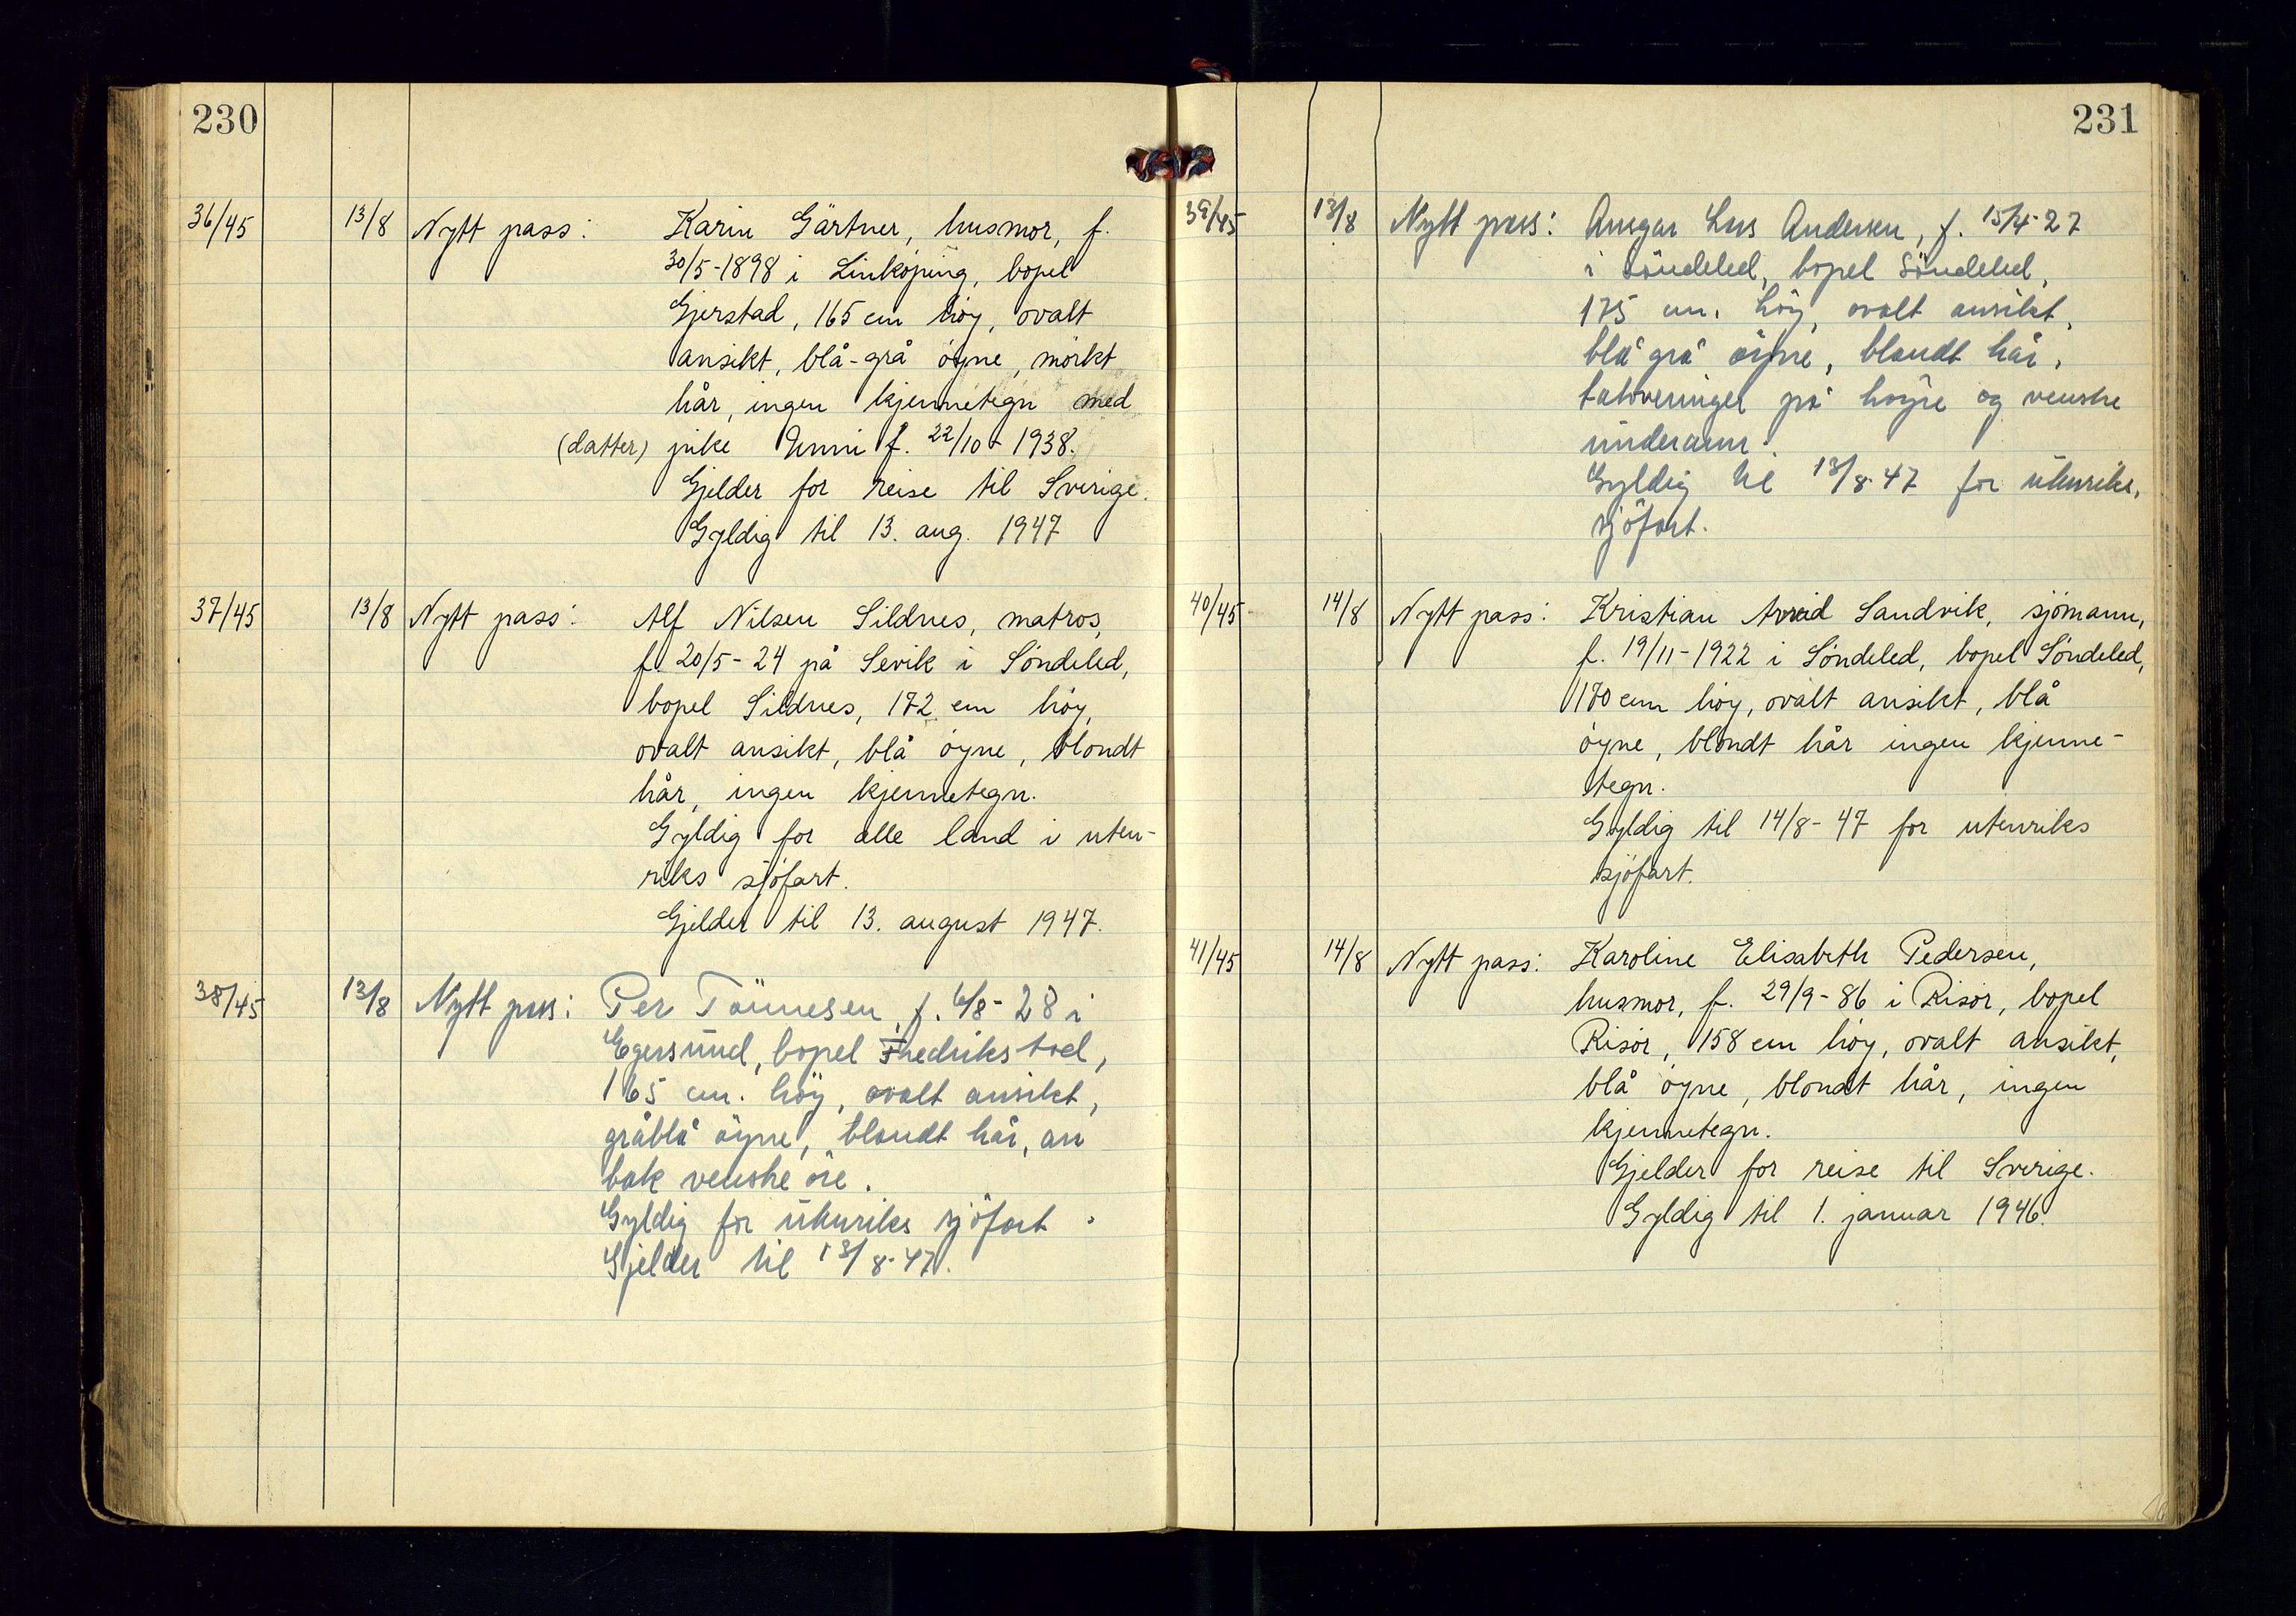 230
36/45 13/8 Nytt pass: Karin Gärtner, husmor, f.
30/5-1898 i Linköping, bopel
Gjerstad, 165 cm höy, ovalt
ansikt, blå-grå öyne, mörkt
hår, ingen kjennetegn med
(datter) pike Unni f. 22/10-1938.
Gjelder for reise til Sverige.
Gyldig til 13. aug. 1947
37/45 13/8 Nytt pass: Alf Nilsen Sildnes, matros,
f. 20/5-24 på Sevik i Söndeled,
bopel Sildnes, 172 cm höy,
ovalt ansikt, blå öyne, blondt
hår, ingen kjennetegn.
Gyldig for alle land i uten-
riks sjöfart.
Gjelder til 13. august 1947.
38/45 13/8 Nytt pass: Per Tönnesen, f. 6/8-28 i
Egersund, bopel Fredrikstad,
165 cm. höy, ovalt ansikt,
gråblå öyne, blondt hår, arr
bak venstre öre.
Gyldig for utenriks sjöfart.
Gjelder til 13/8-47.
231
39/45 13/8 Nytt pass: Ansgar Andersen, f. 15/4-27
i Söndeled, bopel Söndeled,
175 cm. höy, ovalt ansikt,
blå grå öyne, blondt hår,
tatoveringer på höyre og venstre
underarm.
Gyldig til 13/8-47 for utenriks,
sjöfart.
40/45 14/8 Nytt pass: Kristian Arvid Sandvik, sjömann,
f. 19/11-1922 i Söndeled, bopel Söndeled,
170 cm höy, ovalt ansikt, blå
öyne, blondt hår ingen kjenne-
tegn.
Gyldig til 14/8-47 for utenriks
sjöfart.
41/45 14/8 Nytt pass: Karoline Elisabeth Pedersen,
husmor, f. 29/9-86 i Risör, bopel
Risör, 158 cm höy, ovalt ansikt,
blå öyne, blondt hår, ingen
kjennetegn.
Gjelder for reise til Sverige.
Gyldig til 1. januar 1946.